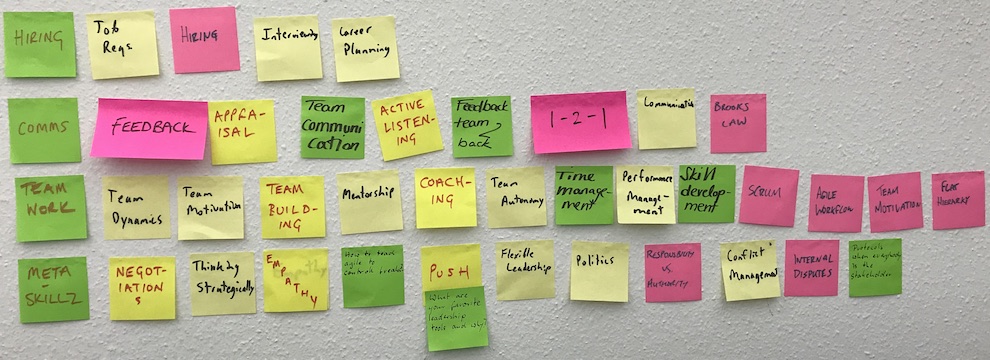 HIRING
Job
Reqs.
HIRING
Interviewing
Career
Planning
COMMS
FEEDBACK
APPRA-
ISAL
Team
Communi
cation
ACTIVE
LISTEN-
ING
Feedback
team
back
1-2-1
Communication
BROOKS
LAW
TEAM
WORK
Team
Dynamics
Team
Motivation
TEAM
BUILD-
ING
Mentorship
COACH-
ING
Team
Autonomy
Time
manage-
ment
Performance
Manage-
ment
Skill
develop-
ment
SCRUM
AGILE
WORKFLOW
TEAM
MOTIVATION
FLAT
HIERARHY
META
-
SKILLZ
NEGOT-
IATION
S
Thinking
Strategically
EMPATHY
How to teach
agile to
control freaks?
PUSH
What are
your favorite
leadership
tools and why?
Flexible
Leadership
Politics
RESPONSIBILITY
VS.
AUTHORITY
Conflict
Management
INTERNAL
DISPUTES
Protocols
when everybody
is the
stakeholder